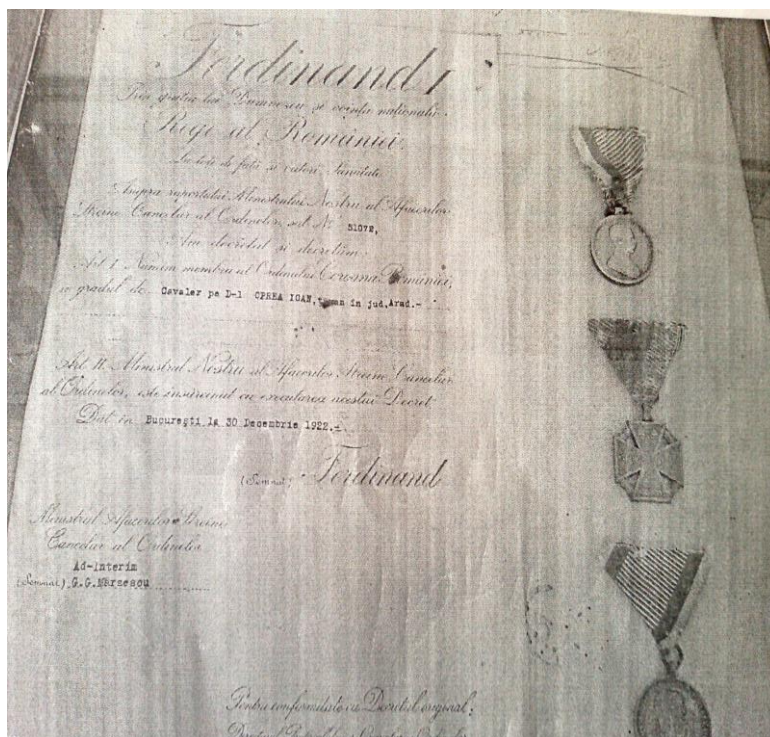 Ferdinand I
Prin grația lui Dumnezeu și voința națională,
Rege al României,
La toți de față și viitori, Sănătate.
Asupra raportului Ministrului Nostru al Afacerilor
Streine Cancelar al Ordinelor, sub No 51072,
Am decretat și decretăm:
Art. I. Numim membru al Ordinului Coroana României,
în gradul de Cavaler pe D-l OPREA IOAN, în jud. Arad.-
Art. II. Ministrul Nostru al Afacerilor Streine Cancelar
al Ordinelor, este însărcinat cu executarea acestui Decret.
Dat în București la 30 Decembrie 1922.-
(Semnat) Ferdinand
Ministrul Afacerilor Streine
Cancelar al Ordinelor
Ad-Interim
(Semnat) G.G.Mârzescu
Pentru conformitate cu Decretul original: